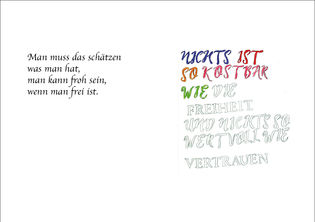 Man muss das schätzen
was man hat,
man kann froh sein,
wenn man frei ist.
NICHTS IST
SO KOSTBAR
WIE DIE
FREIHEIT
UND NICHTS SO
WERTVOLL WIE
VERTRAUEN